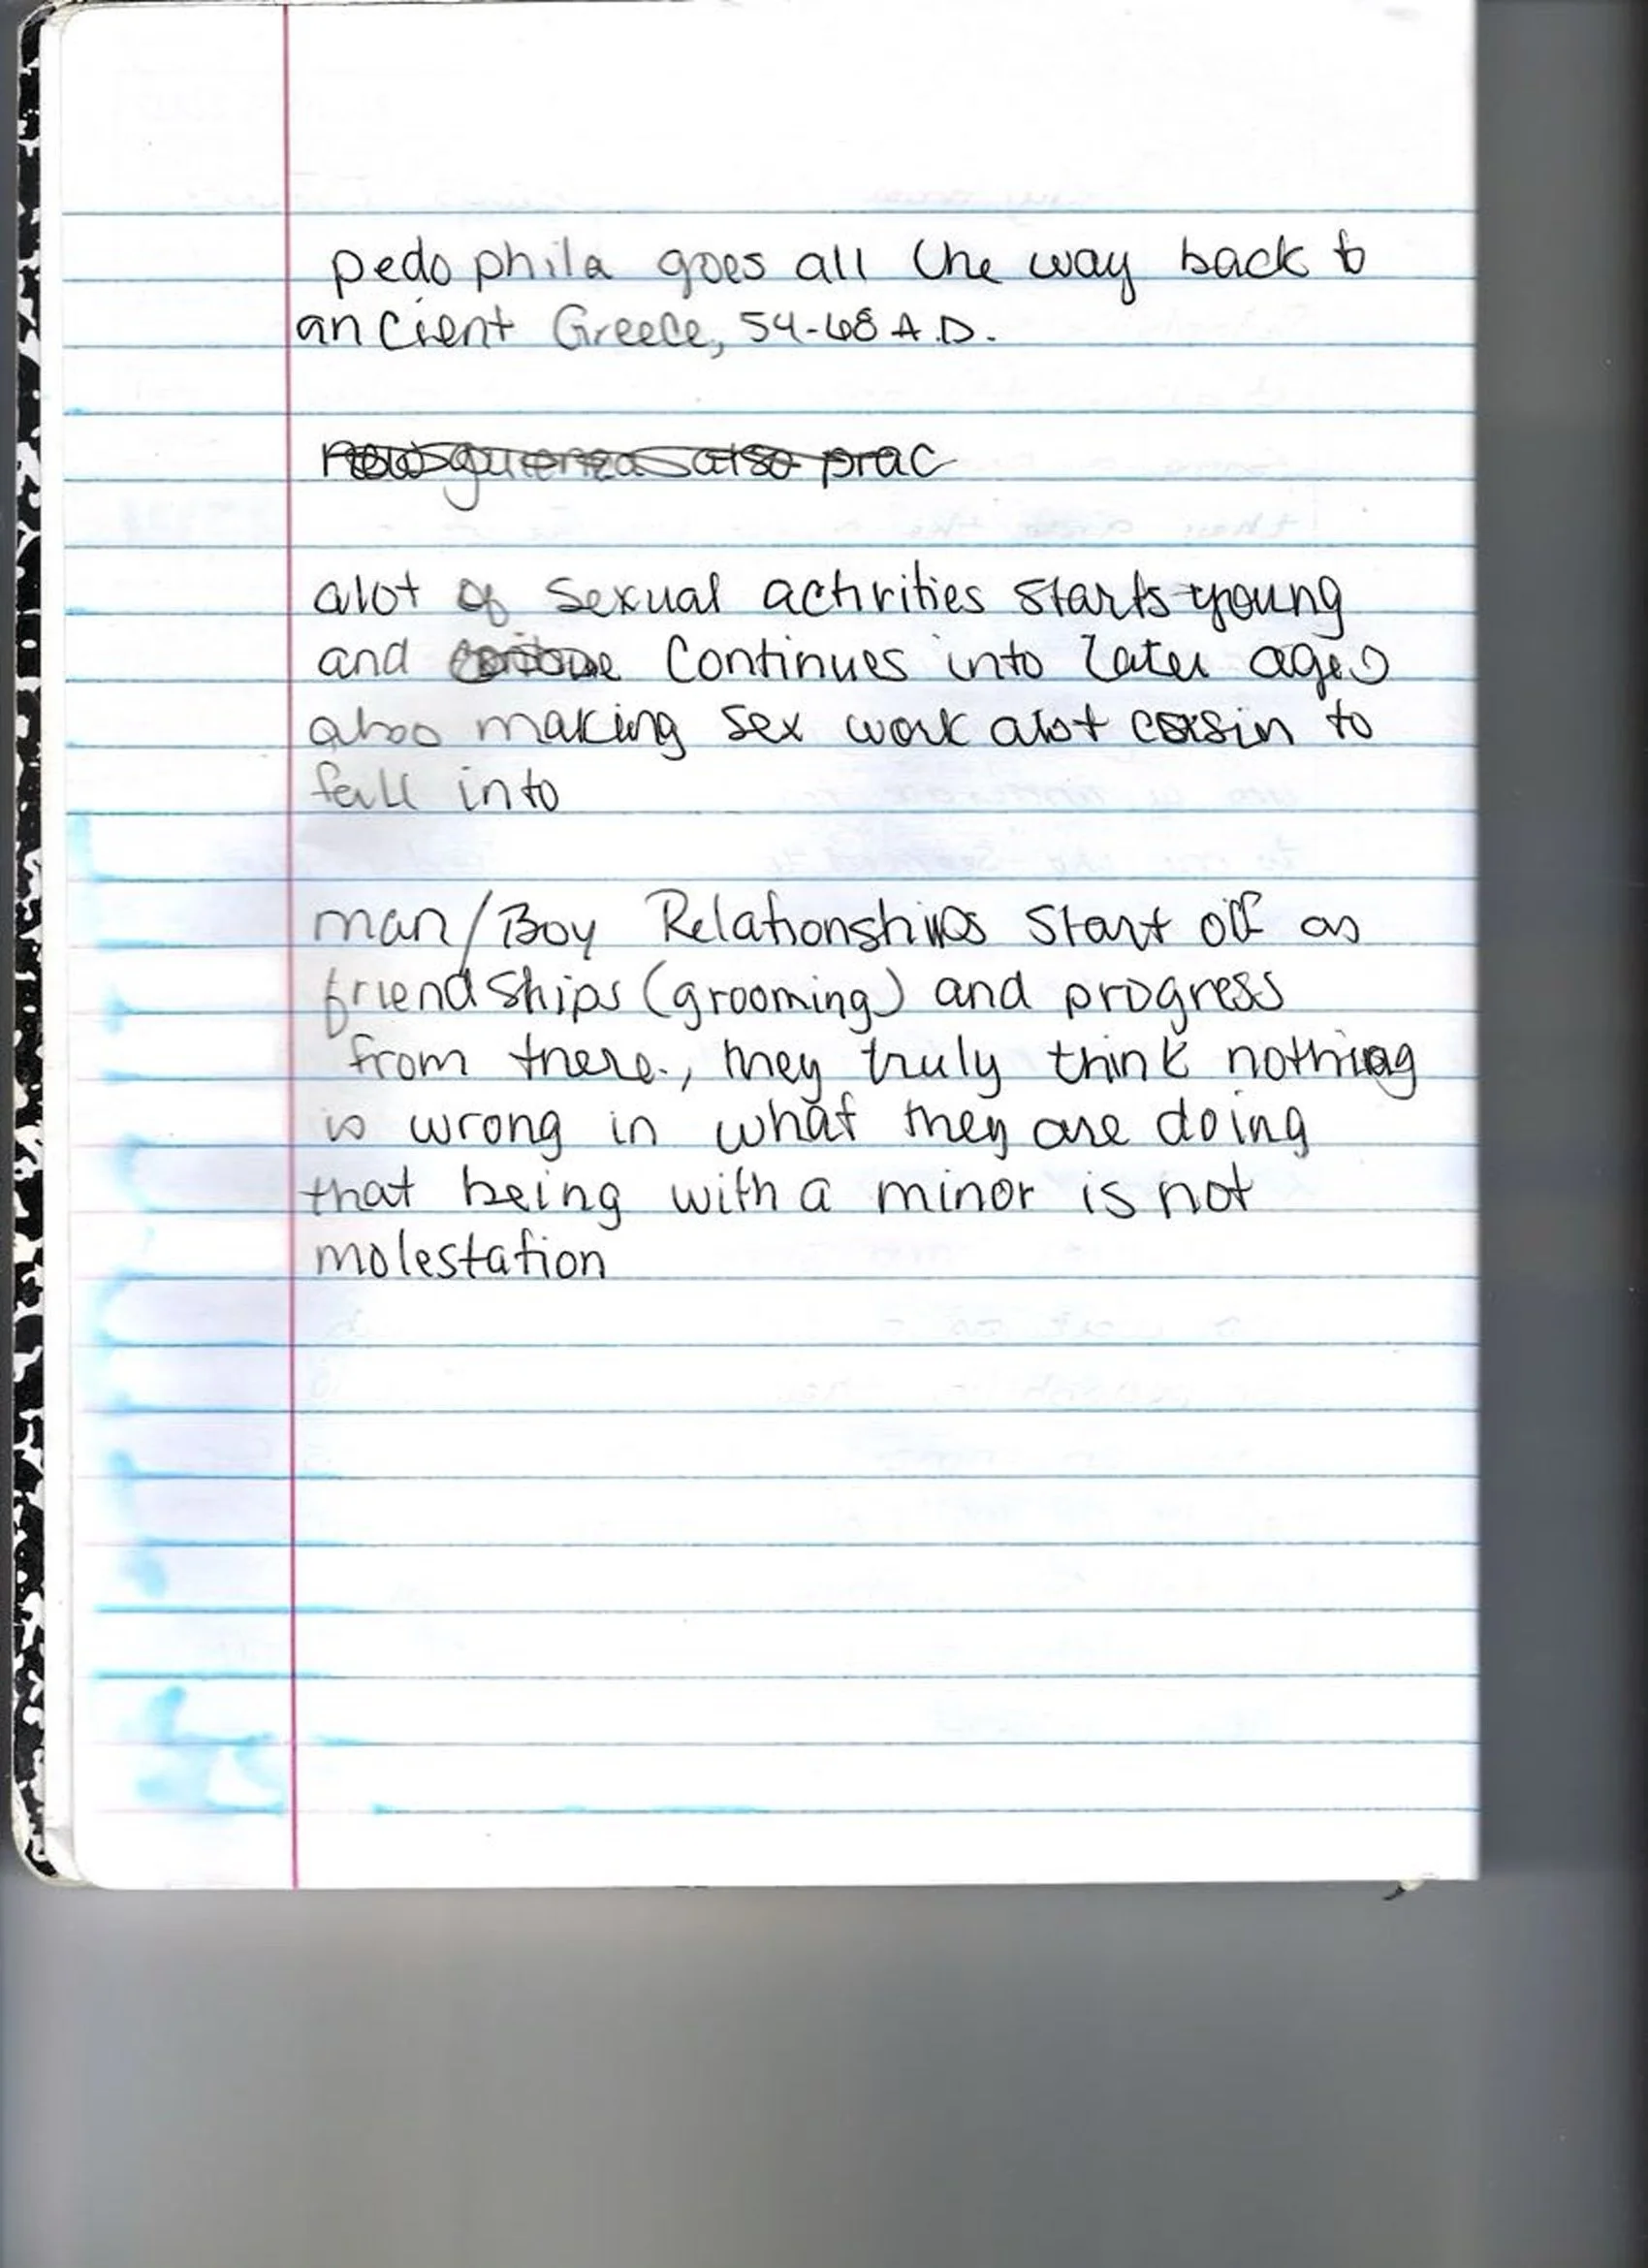 pedo phila goes all the way back to
ancient Greece, 54-68 A.D.
alot of sexual activities starts young
and Continues into later ages
also making sex work alot easier to
fall into
man/Boy Relationships start off as
friendships (grooming) and progress
from there., they truly think nothing
is wrong in what they are doing
that being with a minor is not
molestation